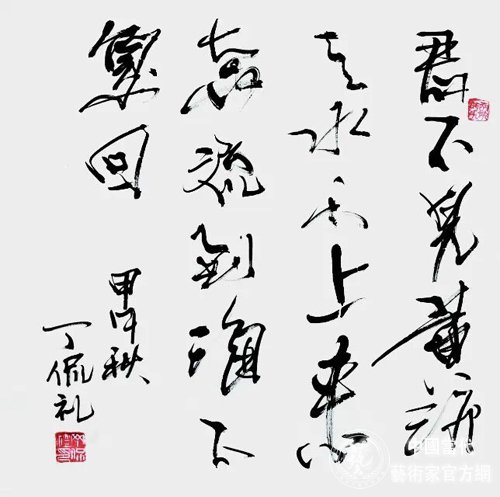 君不見黄河
之水天上来
奔流到海不
复回
甲午秋
丁侃礼
中國當代
藝術家官方網